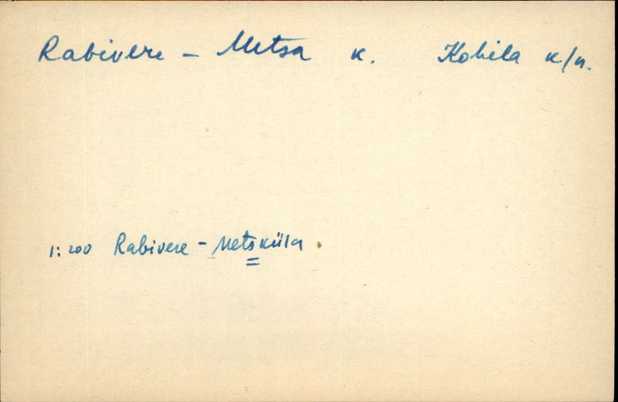 Rabivere - Metsa k. Kohila k/n.
1:200 Rabivere - Metsküla.